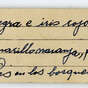 gra e iris rojo
marillo naranja,
as en los bosques